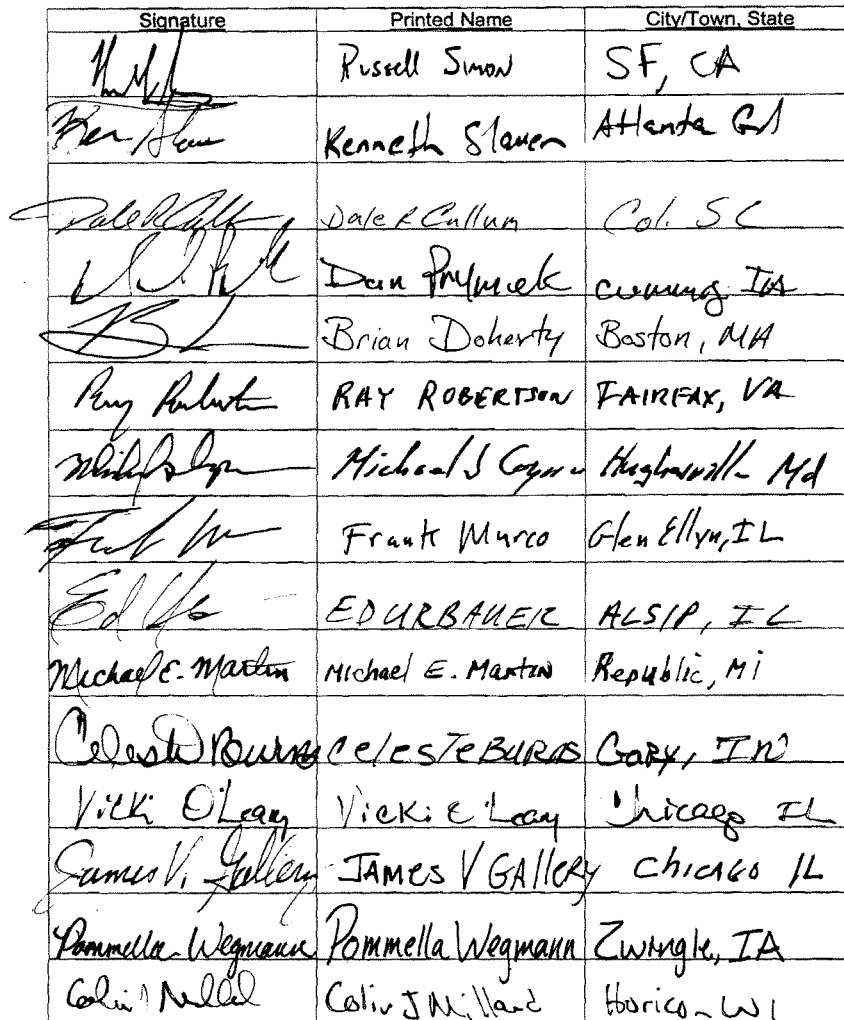 Signature Printed Name City/Town, State
Russell Simon SF, CA
Kenneth Slaven Atlanta GA
Dale R Cullum Dale R Cullum Col. SC
Dan Prymiek Cumming IA
Brian Doherty Boston, MA
Ray Robertson RAY ROBERTSON FAIRFAX, VA
Michael J Coyne Hughesville Md
Frank Murco Glen Ellyn, IL
Ed ED URBAUER ALSIP, IL
Michael E. Martin Michael E. Martin Republic, Mi
Celeste Burns CelesTe BURNS GARY, IN
Vicki O'Leary Vicki O'Leary Chicago IL
James V. Gallery JAMes V GAllery Chicago IL
Pommella Wegmann Pommella Wegmann Zwingle, IA
Colin J Millard Horicon WI